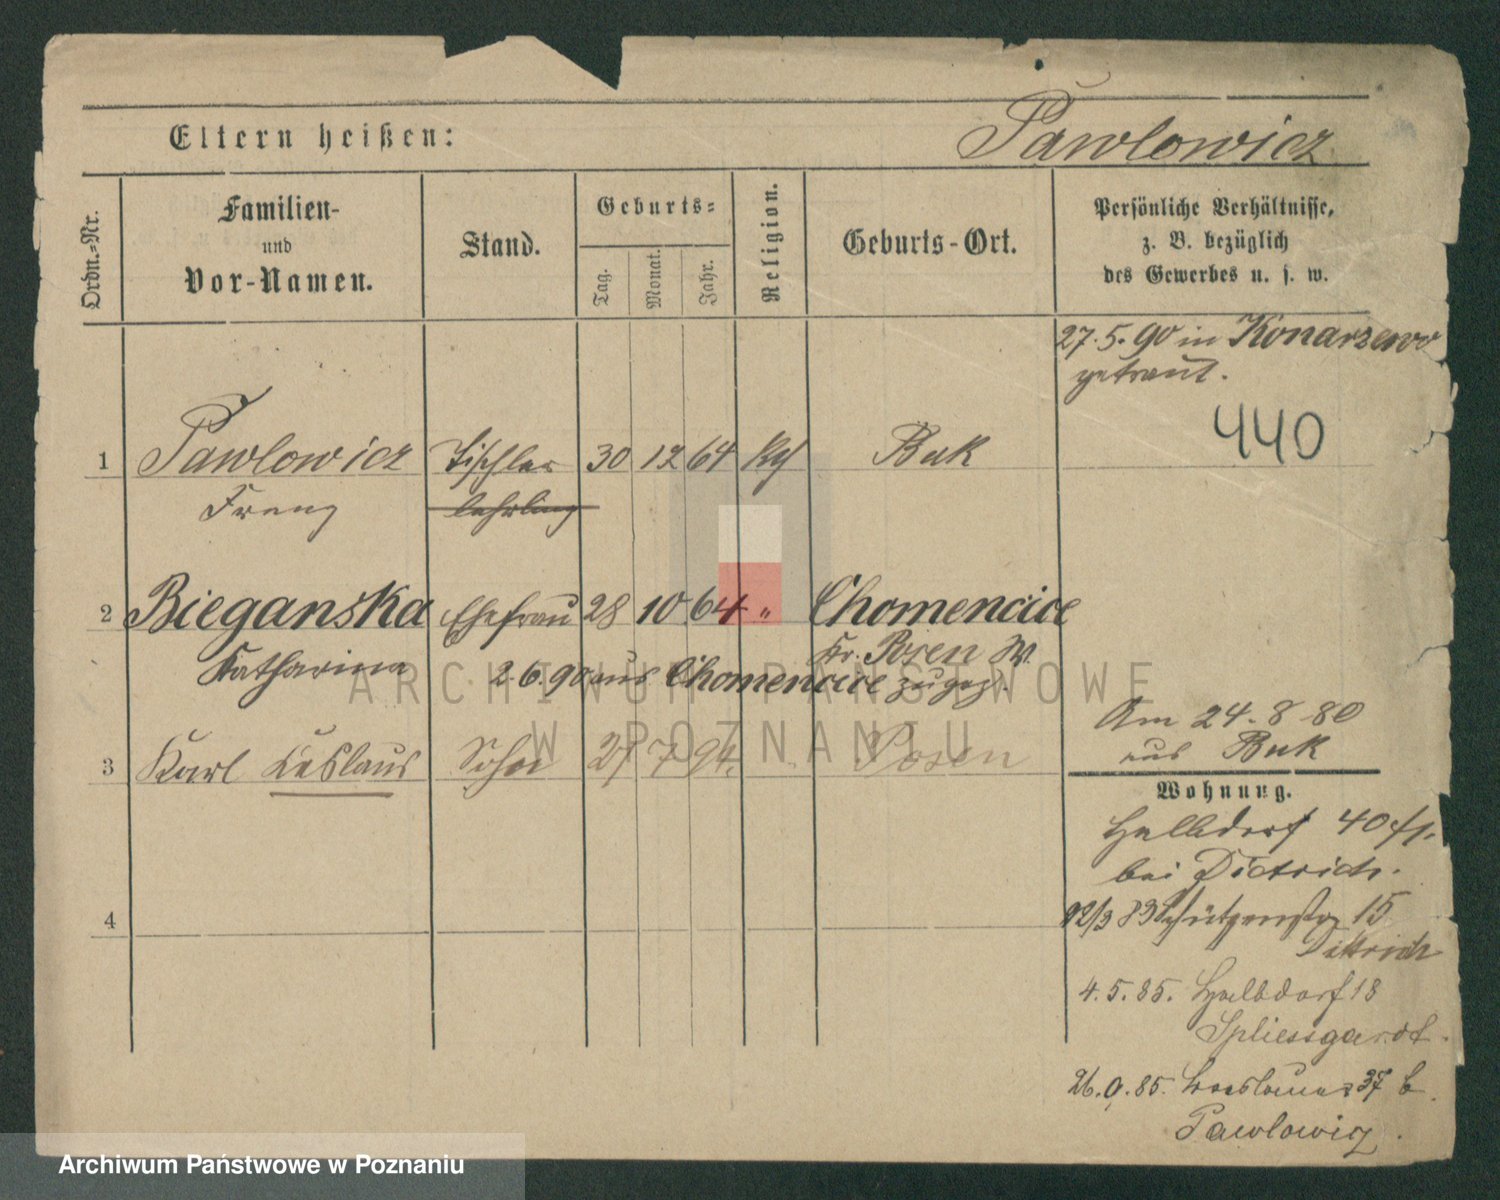 Eltern heißen:
Pawlowicz
Ordn.-Nr.
Familien-
und
Vor-Namen.
Stand.
Geburts-
Tag.
Monat.
Jahr.
Religion.
Geburts-Ort.
Persönliche Verhältnisse,
z. B. bezüglich
des Gewerbes u. s. w.
27.5.90 in Konarzewo
getraut.
440
1 Pawlowicz Tischler 30 12 64 Buk
Franz lehrling
2 Bieganska Ehefrau 28 10 64 " Chomencice
Kr. Posen W.
Katharina 2.6.90 aus Chomencice zugez.
3 Karl Sohn 7 94. Posen
Am 24.8 80
aus Buk
Wohnung.
Halbdorf 40
bei Dittrich.
12/3 83 Schützenstr 15
Dittrich
4.5.85. Halbdorf 18
Spliessgardt.
85. 37 b.
Pawlowicz.
4
ARCHIWUM PAŃSTWOWE
W POZNANIU
Archiwum Państwowe w Poznaniu